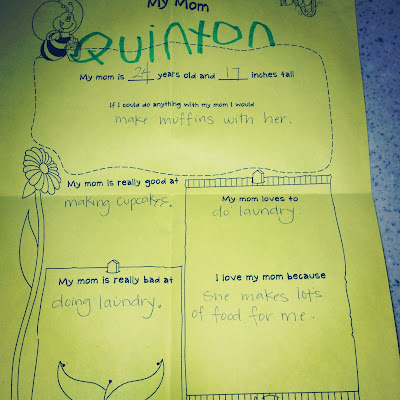 My Mom
Quinton
My mom is 24 years old and 17 inches tall
If I could do anything with my mom I would
make muffins with her.
My mom is really good at
making cupcakes.
My mom loves to
do laundry.
My mom is really bad at
doing laundry.
I love my mom because
she makes lots
of food for me.